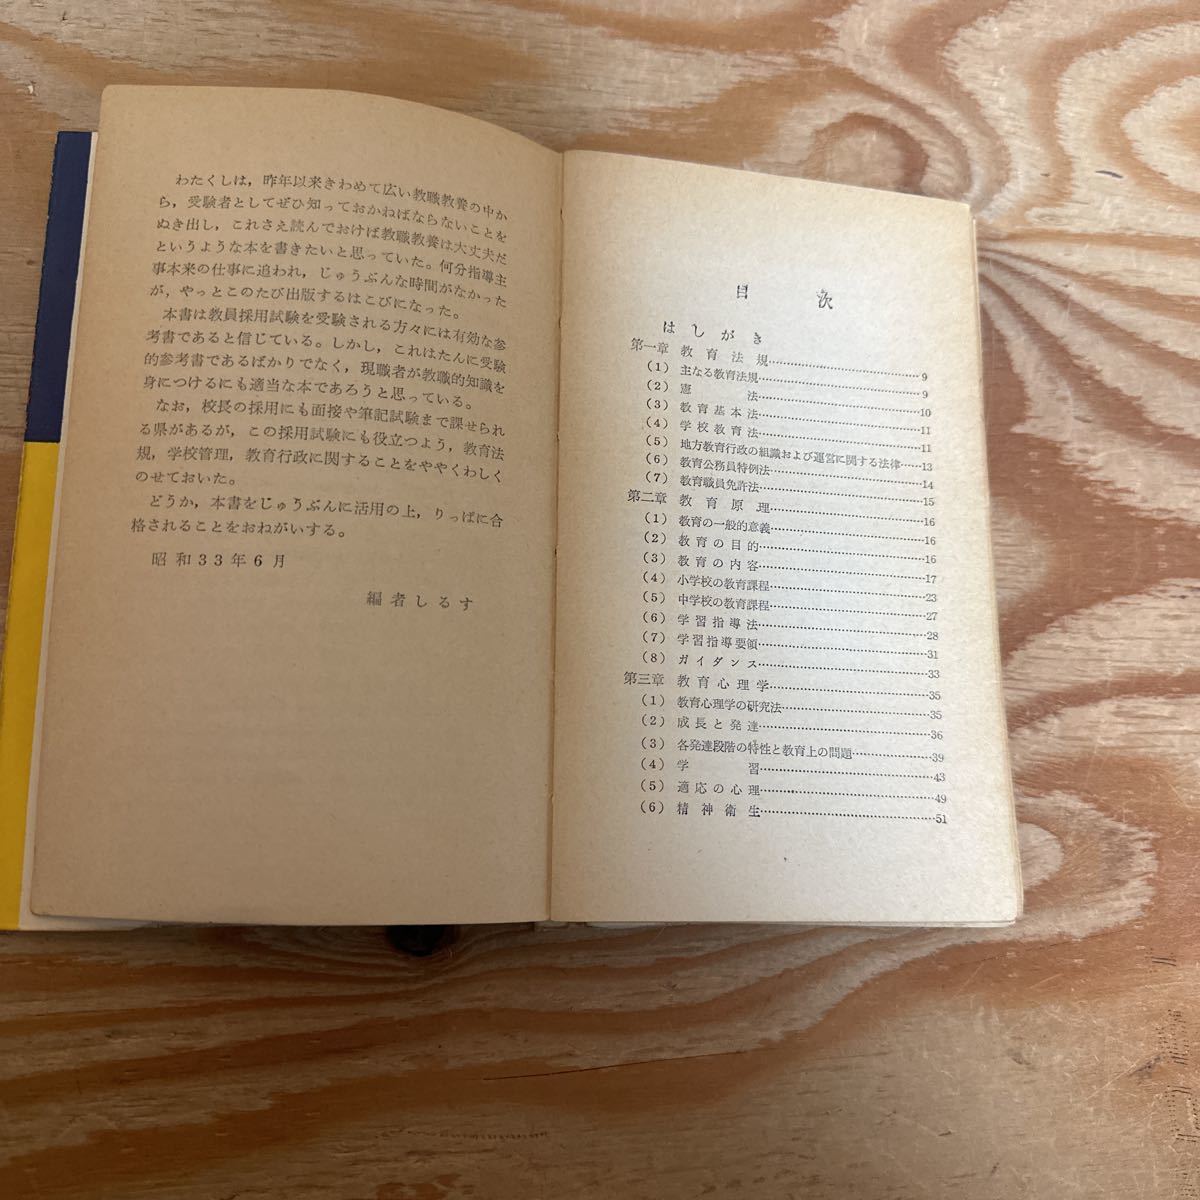 わたくしは，昨年以来きわめて広い教職教養の中か
ら，受験者としてぜひ知っておかねばならないことを
ぬき出し，これさえ読んでおけば教職教養は大丈夫だ
というような本を書きたいと思っていた。何分指導主
事本来の仕事に追われ，じゅうぶんな時間がなかった
が，やっとこのたび出版するはこびになった。
本書は教員採用試験を受験される方々には有効な参
考書であると信じている。しかし，これはたんに受験
的参考書であるばかりでなく，現職者が教職的知識を
身につけるにも適当な本であろうと思っている。
なお，校長の採用にも面接や筆記試験まで課せられ
る県があるが，この採用試験にも役立つよう，教育法
規，学校管理，教育行政に関することをややくわしく
のせておいた。
どうか，本書をじゅうぶんに活用の上，りっぱに合
格されることをおねがいする。
昭和33年6月
編者しるす
目次
はしがき
第一章 教育法規……9
(1) 主なる教育法規……9
(2) 憲法……10
(3) 教育基本法……11
(4) 学校教育法……11
(5) 地方教育行政の組織および運営に関する法律……13
(6) 教育公務員特例法……14
(7) 教育職員免許法……15
第二章 教育原理……16
(1) 教育の一般的意義……16
(2) 教育の目的……16
(3) 教育の内容……17
(4) 小学校の教育課程……23
(5) 中学校の教育課程……27
(6) 学習指導法……28
(7) 学習指導要領……31
(8) ガイダンス……33
第三章 教育心理学……35
(1) 教育心理学の研究法……35
(2) 成長と発達……36
(3) 各発達段階の特性と教育上の問題……39
(4) 学習……43
(5) 適応の心理……49
(6) 精神衛生……51